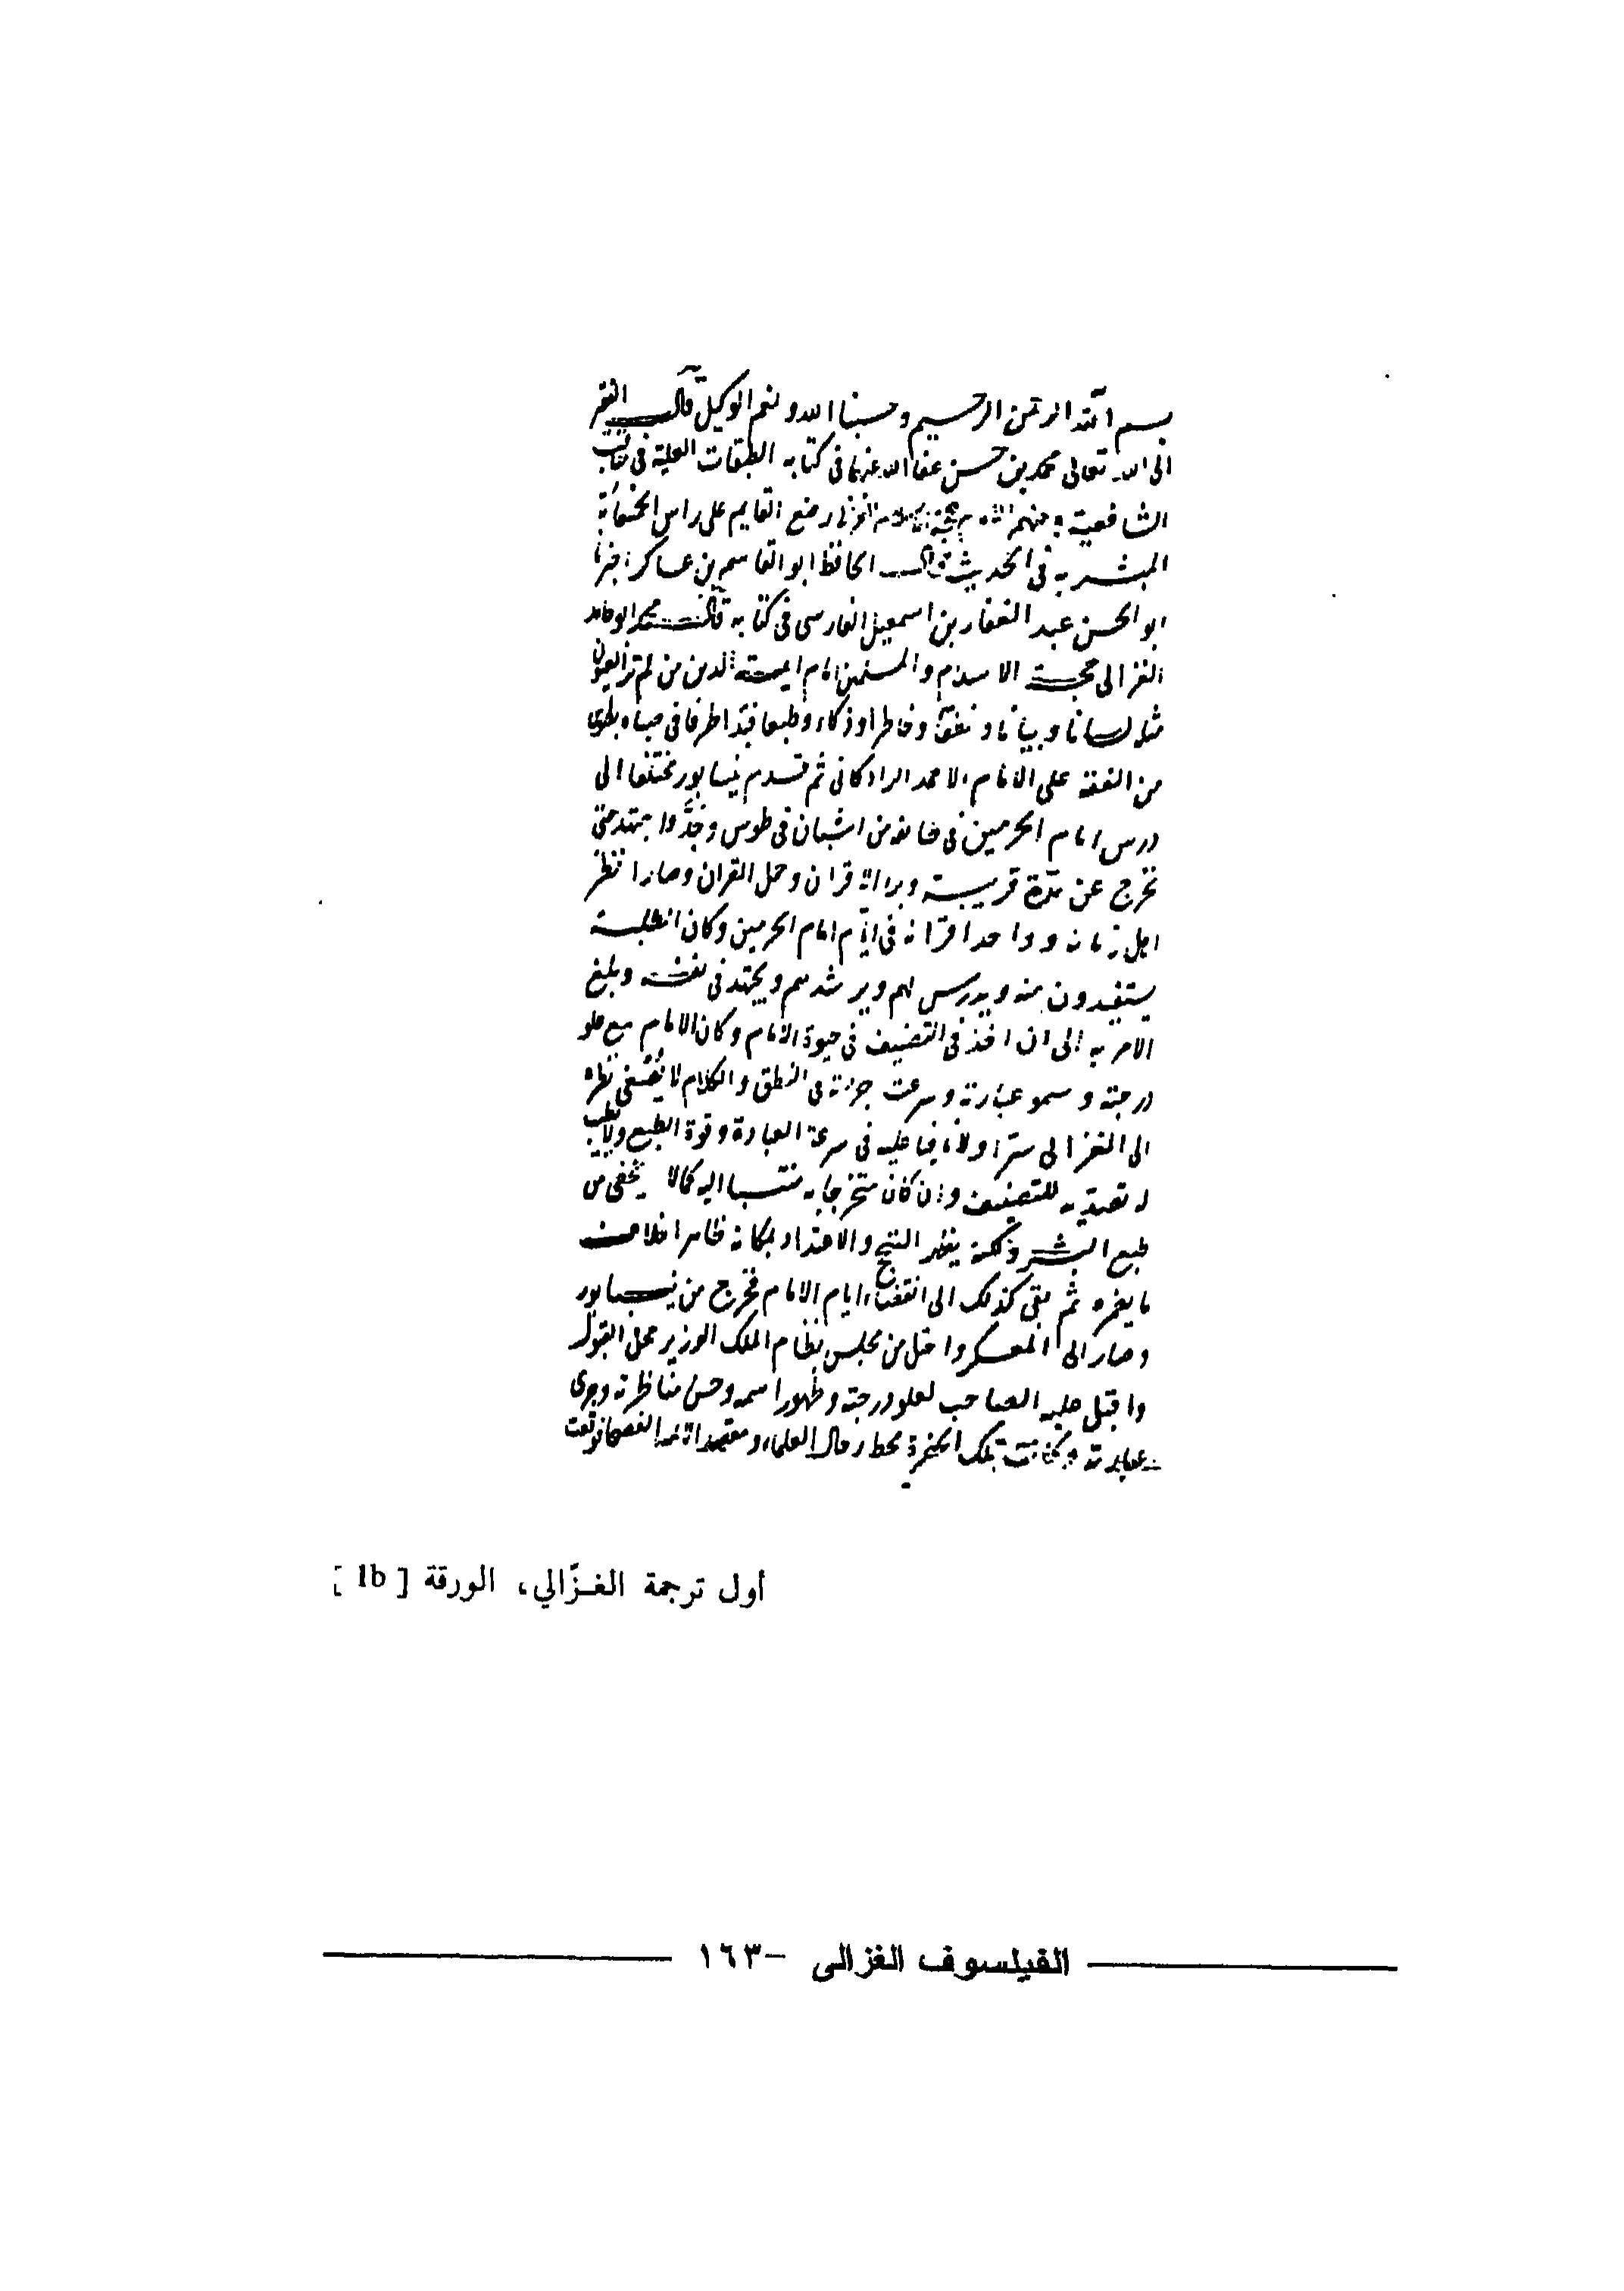 بسم الله الرحمن الرحيم وحسبنا الله ونعم الوكيل قال الفقير
الى الله تعالى محمد بن حسن عفا الله عنهما فى كتابه الطبقات العلية فى مناقب
الشافعية ومنهم الامام حجة الاسلام الغزالى رضع القايم على راس الخمسمائة
المبشر به فى الحديث قال الحافظ ابو القاسم بن عساكر اخبرنا
ابو الحسن عبد الغفار بن اسمعيل الفارسى فى كتابه قال محمد ابو حامد
الغزالى حجة الاسلام والمسلمين امام ايمة الدين من لم تر العيون
مثله لسانا وبيانا ونطقا وخاطرا وذكاء وطبعا شدا طرفا فى صباه بطوس
من الفقه على الامام الاحمد الرادكانى ثم قدم نيسابور مختلفا الى
درس امام الحرمين فى طايفة من الشبان فى طوس وجد واجتهد حتى
تخرج عن مدة قريبة وبز الاقران وحمل القران وصار انظر
اهل زمانه وواحد اقرانه فى ايام امام الحرمين وكان الطلبة
يستفيدون منه ويدرس لهم ويرشدهم ويجتهد فى نفسه وبلغ
الامر به الى ان اخذ فى التصنيف فى حيوة الامام وكان الامام مع علو
درجته وسمو عبارته وسرعت جريه فى النطق والكلام لا يصغى نظره
الى الغزالى سترا ولاانافيا عليه فى سرعة العبارة وقوة الطبع ولا يطيب
له تصديه للتصنيف وان كان متخرجا به منتسبا اليه كمالا يخفى من
طبع البشر ولكنه يظهر التبجح والاعتداد بمكانه ظاهرا خلاف
ما يضمره ثم بقى كذلك الى انقضاء ايام الامام فخرج من نيسابور
وصار الى المعسكر واحتل من مجلس نظام الملك الوزير محل القبول
واقبل عليه الصاحب لعلو درجته وظهور اسمه وحسن مناظرته وجرى
عبارته وكانت تلك الحضرة محط رحال العلماء ومقصد الائمة الفصحا فوقعت
أول ترجمة الغـزّالي، الورقة [ 1b ]
الفيلسوف الغزالى -١٦٣